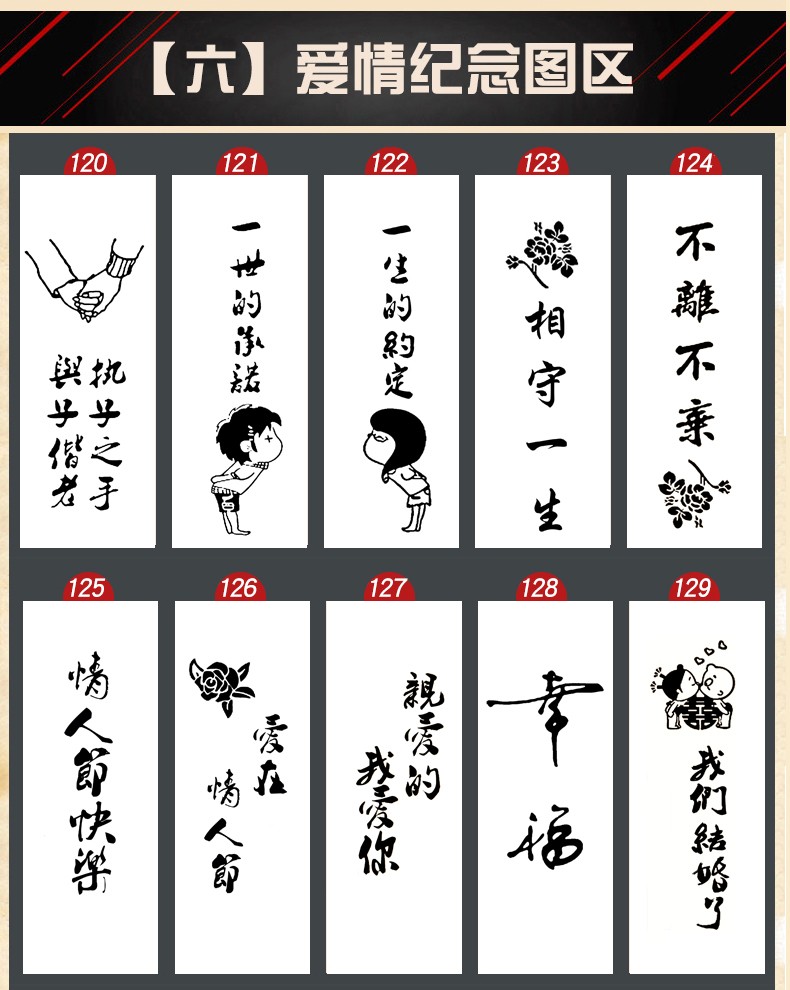 【六】爱情纪念图区
120
執子之手
與子偕老
121
一世的承諾
122
一生的約定
123
相守一生
124
不離不棄
125
情人節快樂
126
愛在
情人節
127
親愛的
我愛你
128
幸福
129
囍
我們結婚了